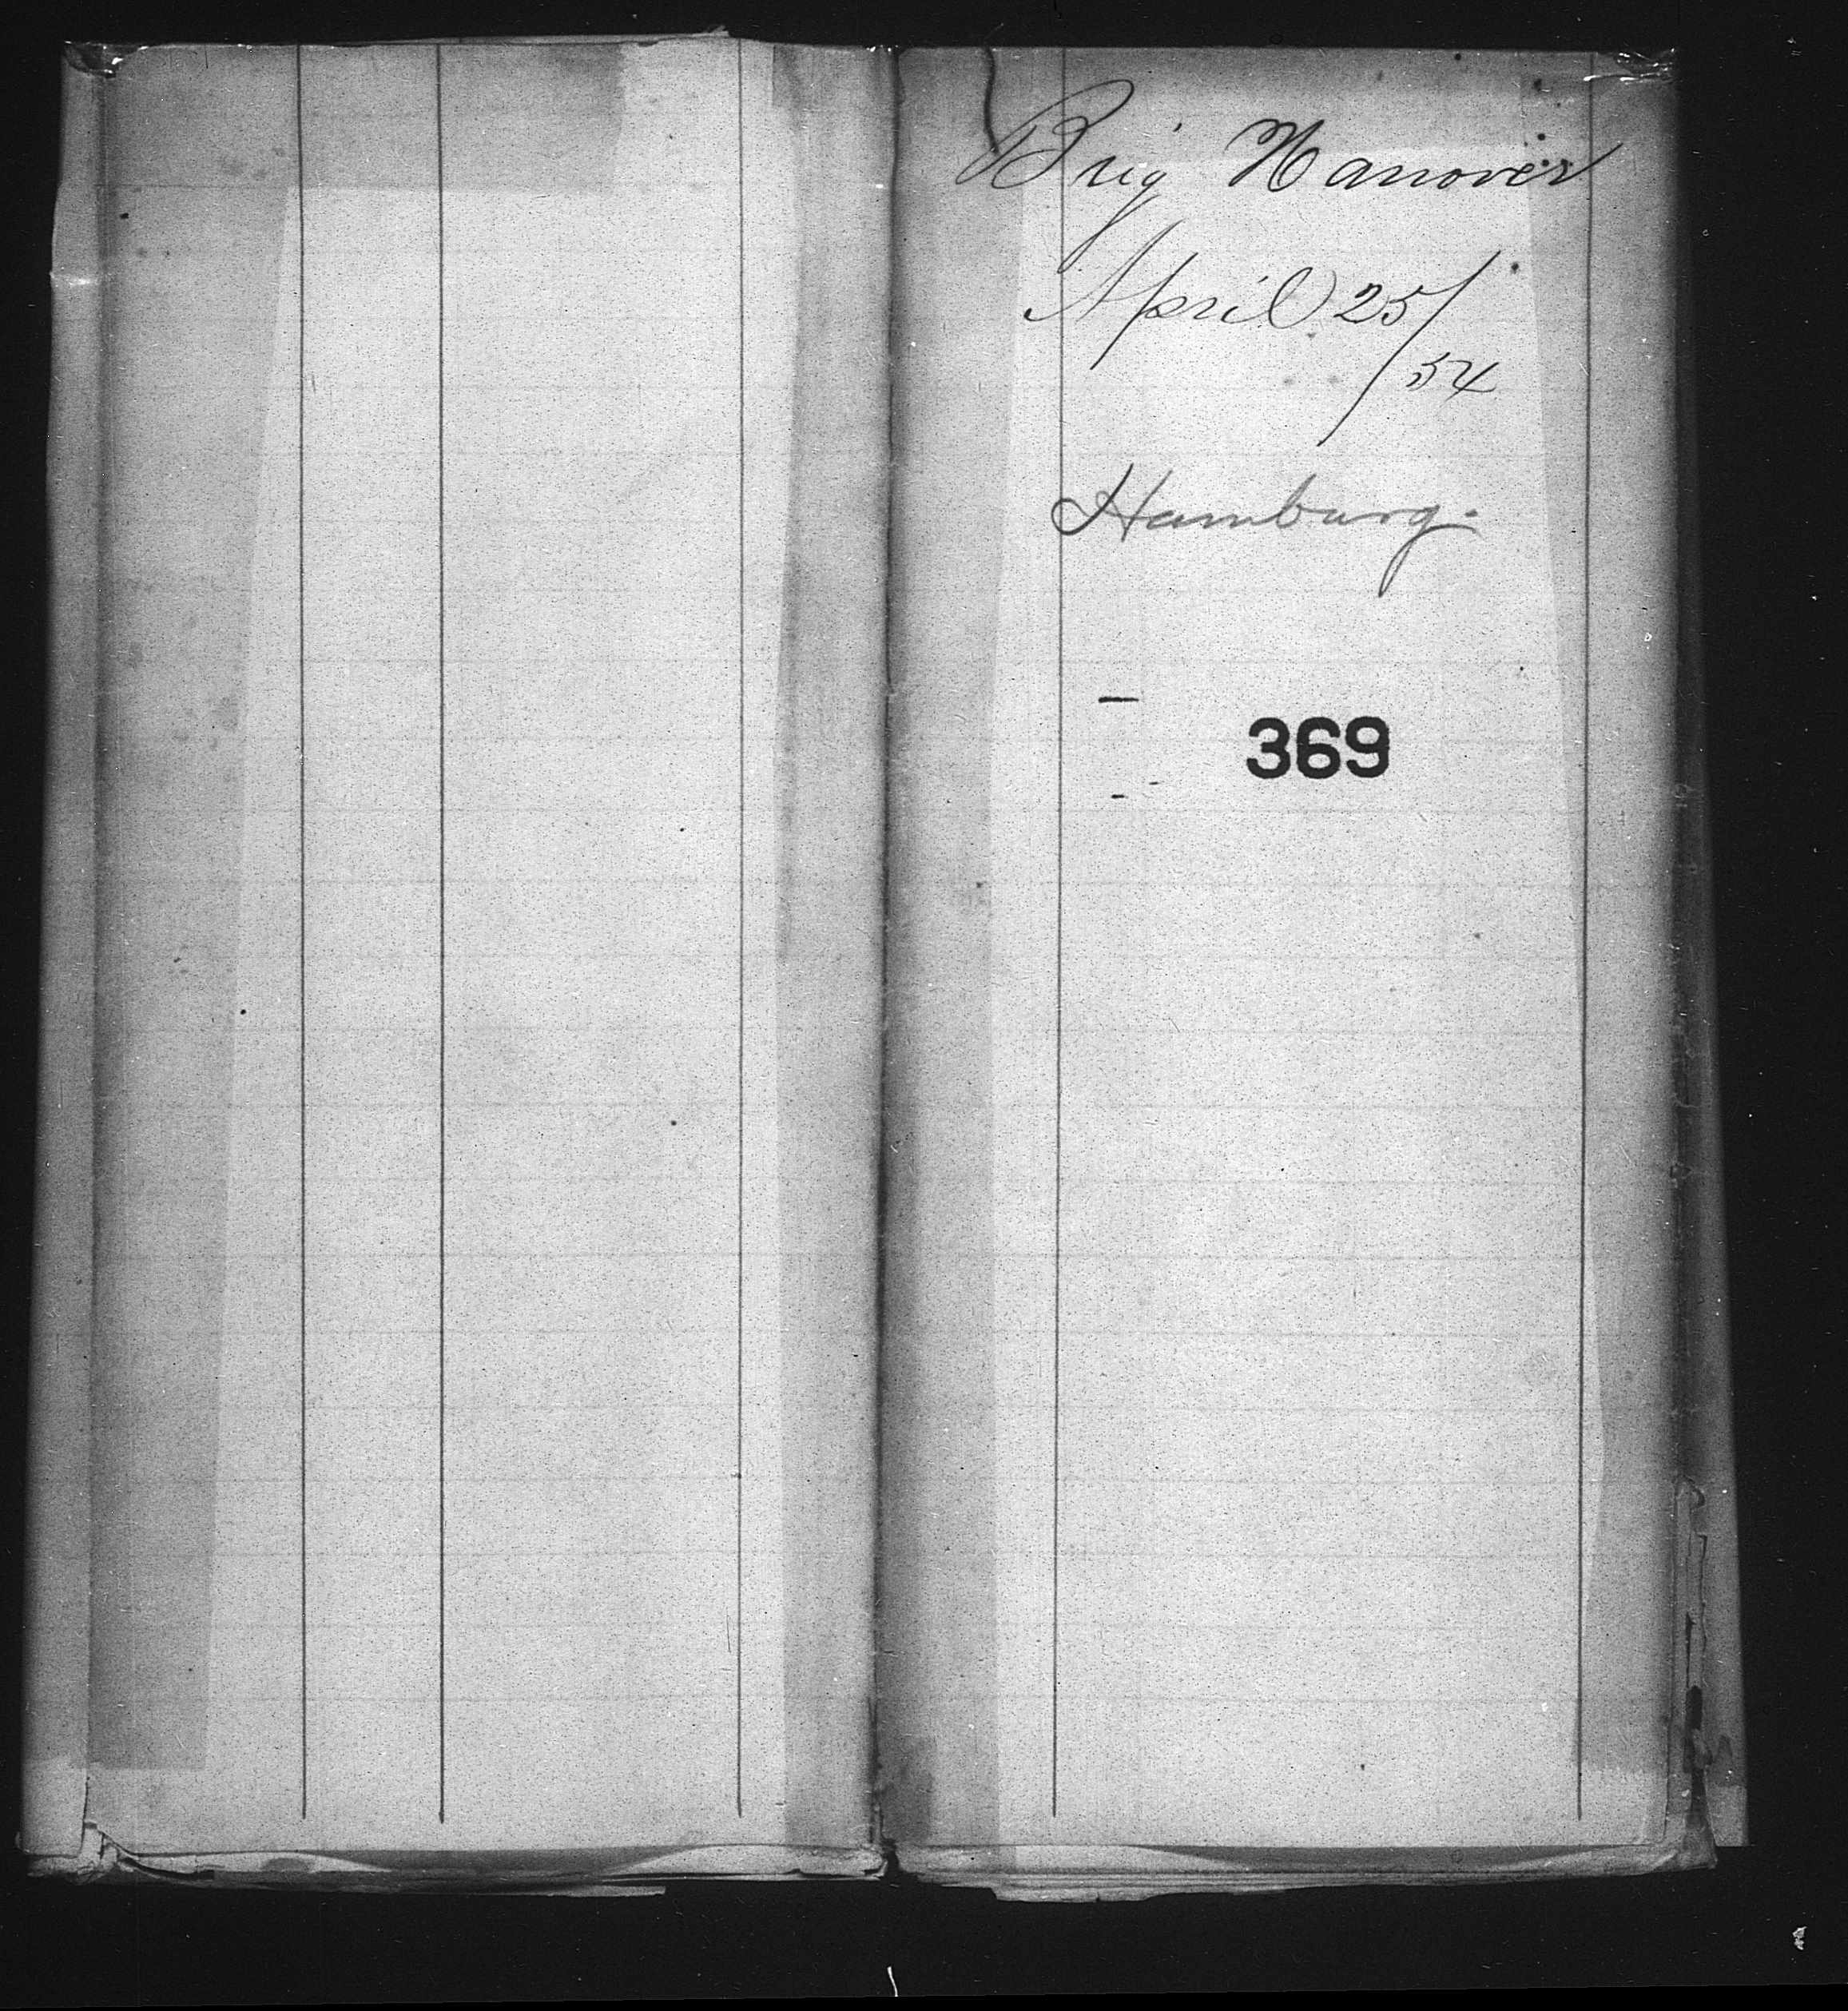 Brig Hanover
April 25/
/54
Hamburg.
369